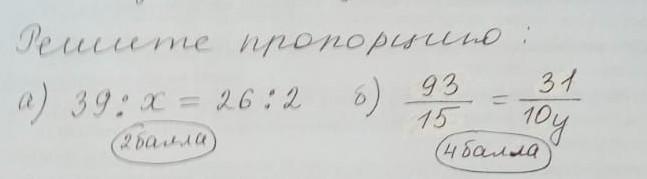 Решите пропорцию:
а) 39 : x = 26 : 2 б) 93/15 = 31/10y
2 балла 4 балла